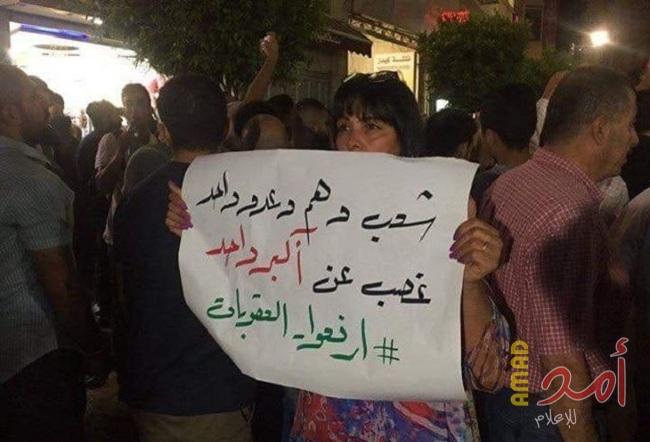 شعب وهم وعدو واحد
غصب عن أكبر واحد
#ارفعوا_العقوبات
كيدز
AMAD
أمد
للإعلام